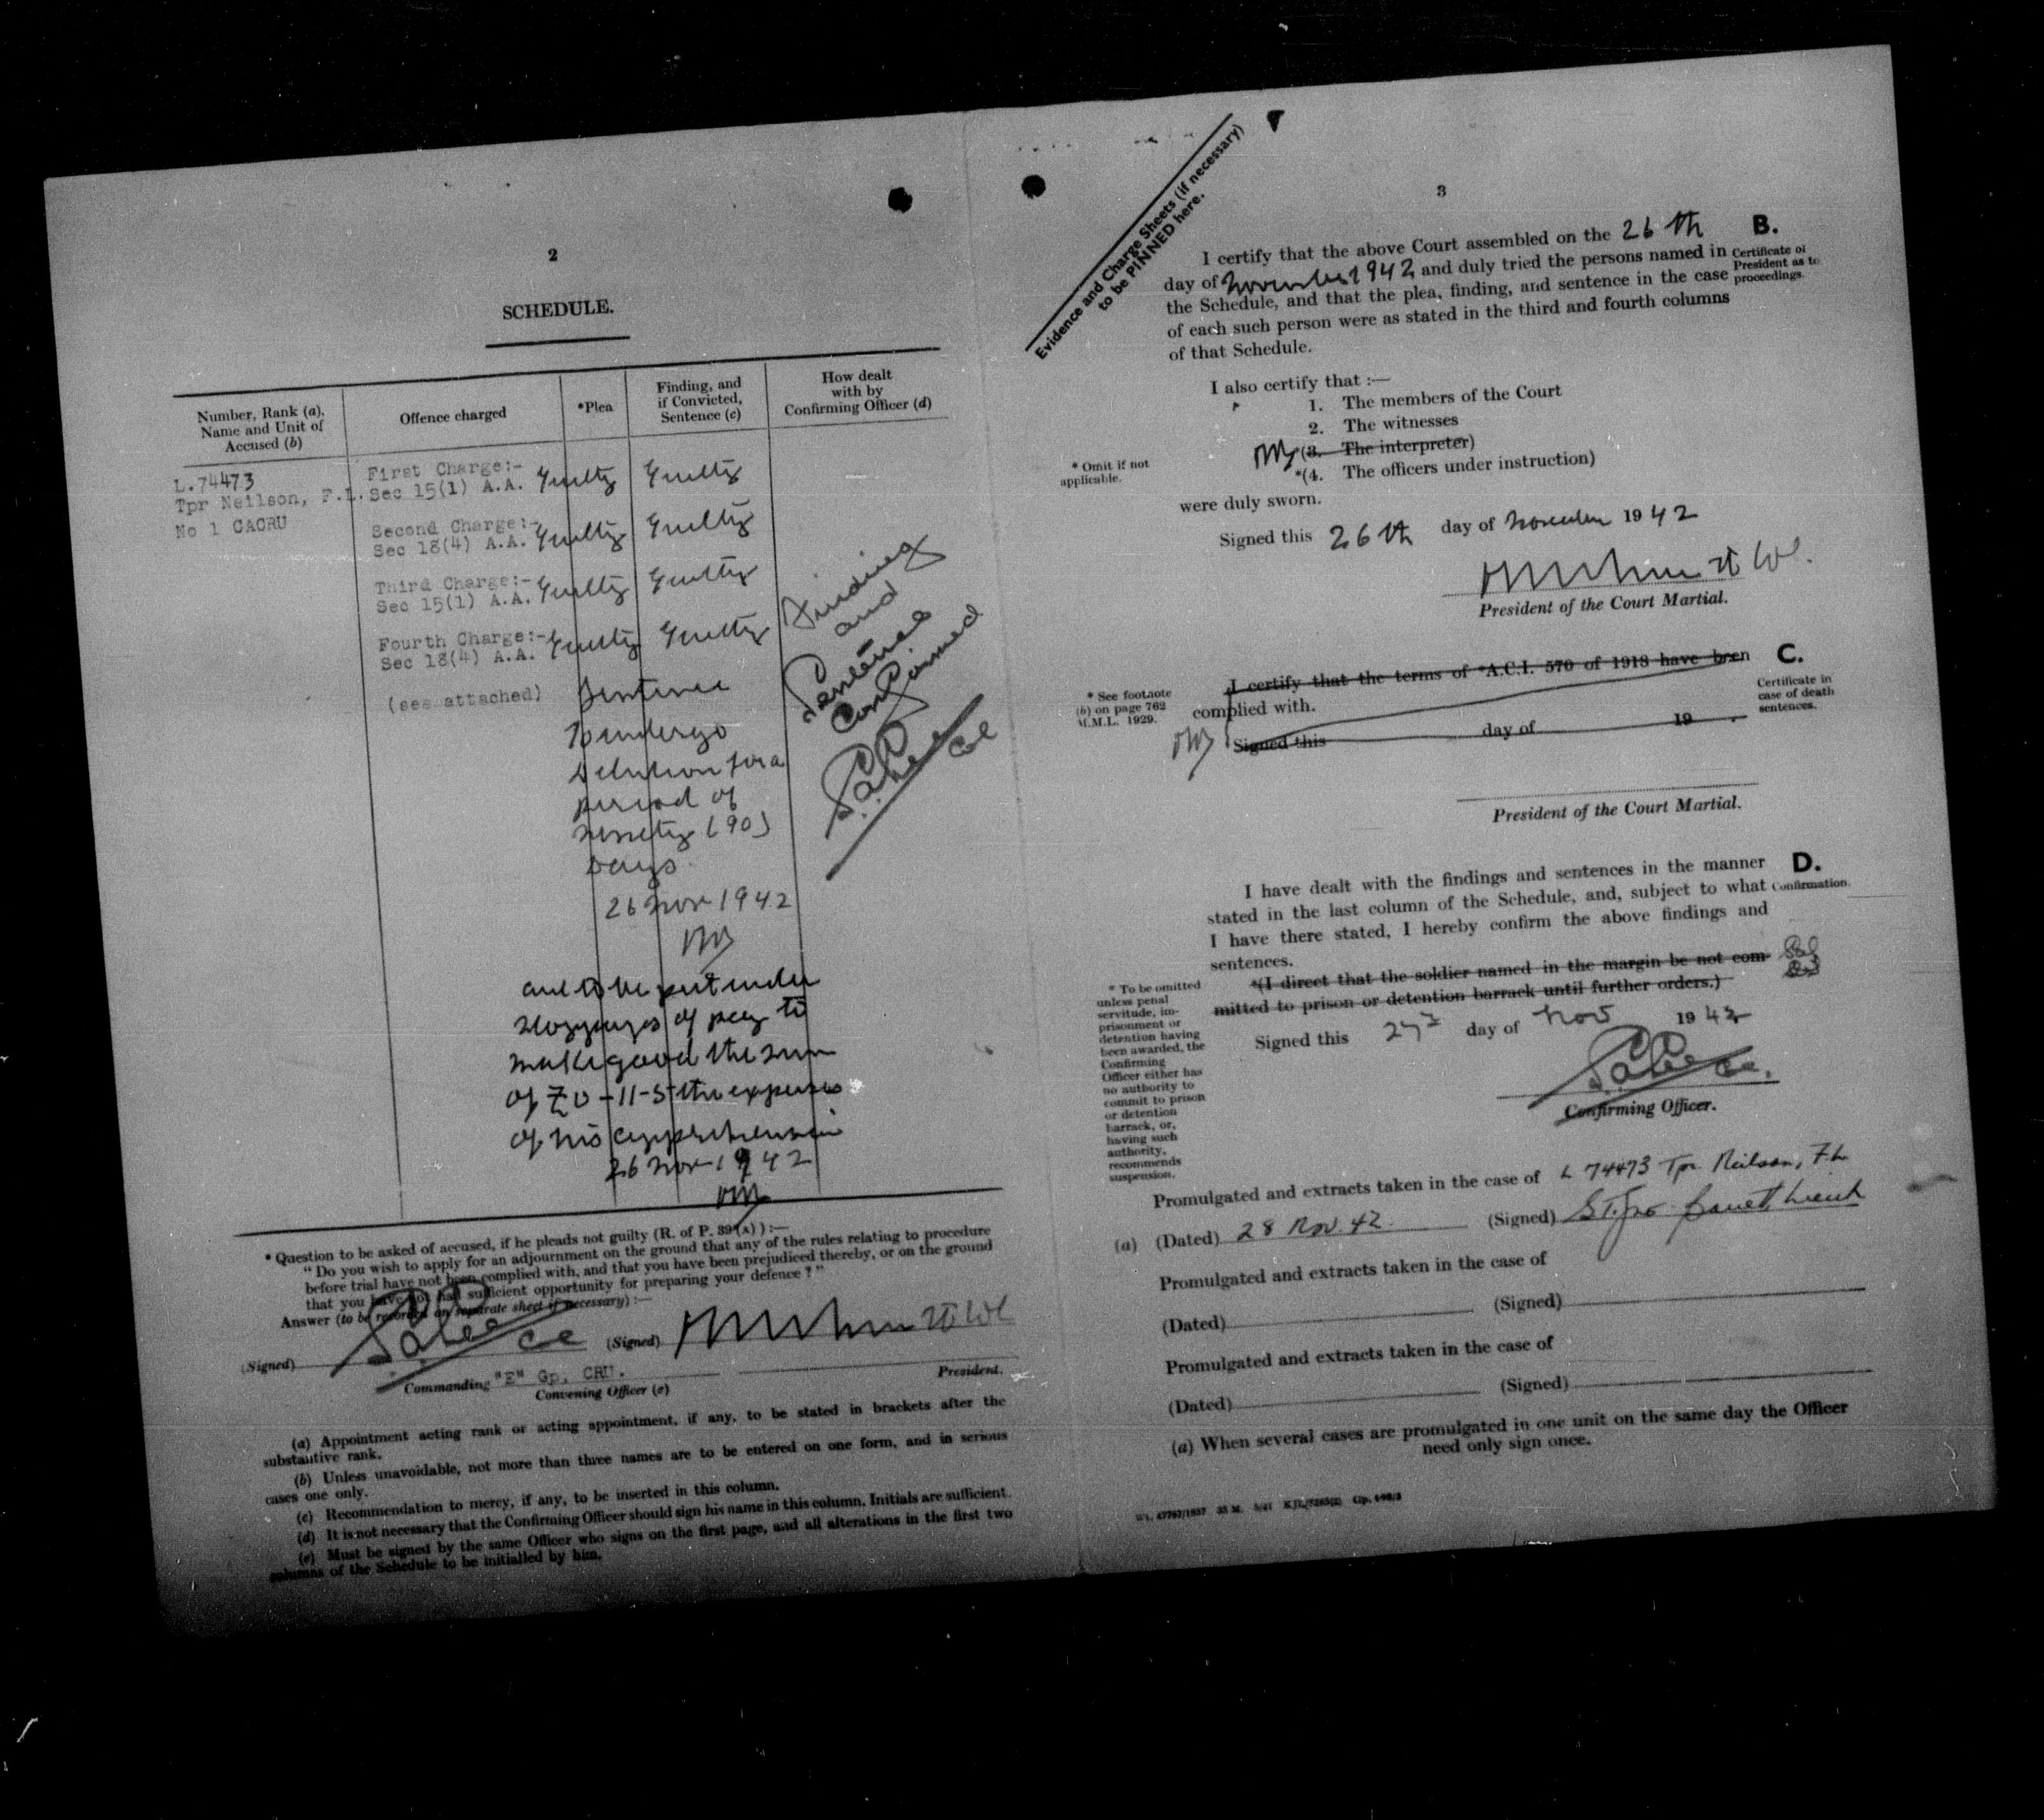 2
SCHEDULE.
Number, Rank (a),
Name and Unit of
Accused (b)
Offence charged
*Plea
Finding, and
if Convicted,
Sentence (c)
How dealt
with by
Confirming Officer (d)
L.74473
Tpr Neilson, F.L.
No 1 CACRU
First Charge:-
Sec 15(1) A.A. Guilty Guilty
Second Charge:-
Sec 18(4) A.A. Guilty Guilty
Third Charge:-
Sec 15(1) A.A. Guilty Guilty
Fourth Charge:-
Sec 18(4) A.A. Guilty Guilty
(see attached)
Sentence
To undergo
detention for a
period of
ninety (90)
Days.
26 Nov 1942
and to be put under
stoppages of pay to
make good the sum
of £0-11-5 the expenses
of his apprehension
26 Nov 1942
Finding
and
Sentence
Confirmed
*Question to be asked of accused, if he pleads not guilty (R. of P. 39 (A) ) :—
"Do you wish to apply for an adjournment on the ground that any of the rules relating to procedure
before trial have not been complied with, and that you have been prejudiced thereby, or on the ground
that you have not had sufficient opportunity for preparing your defence ?"
Answer (to be recorded on separate sheet if necessary) :—
(Signed)
(Signed)
Commanding "E" Gp, CRU.
Convening Officer (e)
President.
(a) Appointment acting rank or acting appointment, if any, to be stated in brackets after the
substantive rank.
(b) Unless unavoidable, not more than three names are to be entered on one form, and in serious
cases one only.
(c) Recommendation to mercy, if any, to be inserted in this column.
(d) It is not necessary that the Confirming Officer should sign his name in this column. Initials are sufficient.
(e) Must be signed by the same Officer who signs on the first page, and all alterations in the first two
columns of the Schedule to be initialled by him.
Evidence and Charge Sheets (if necessary)
to be PINNED here.
3
B.
Certificate of
President as to
proceedings.
I certify that the above Court assembled on the 26th
day of November 1942 and duly tried the persons named in
the Schedule, and that the plea, finding, and sentence in the case
of each such person were as stated in the third and fourth columns
of that Schedule.
I also certify that :—
1. The members of the Court
2. The witnesses
*(3. The interpreter)
*(4. The officers under instruction)
* Omit if not
applicable.
were duly sworn.
Signed this 26th day of November 1942
President of the Court Martial.
C.
Certificate in
case of death
sentences.
* See footnote
(b) on page 762
M.M.L. 1929.
I certify that the terms of *A.C.I. 570 of 1918 have been
complied with.
Signed this day of 19 .
President of the Court Martial.
D.
Confirmation.
I have dealt with the findings and sentences in the manner
stated in the last column of the Schedule, and, subject to what
I have there stated, I hereby confirm the above findings and
sentences.
*(I direct that the soldier named in the margin be not com-
mitted to prison or detention barrack until further orders.)
* To be omitted
unless penal
servitude, im-
prisonment or
detention having
been awarded, the
Confirming
Officer either has
no authority to
commit to prison
or detention
barrack, or,
having such
authority,
recommends
suspension.
Signed this 27 day of Nov 1942
Confirming Officer.
Promulgated and extracts taken in the case of L 74473 Tpr. Neilson, F.L
(a) (Dated) 28 Nov. 42. (Signed)
Promulgated and extracts taken in the case of
(Dated) (Signed)
Promulgated and extracts taken in the case of
(Dated) (Signed)
(a) When several cases are promulgated in one unit on the same day the Officer
need only sign once.